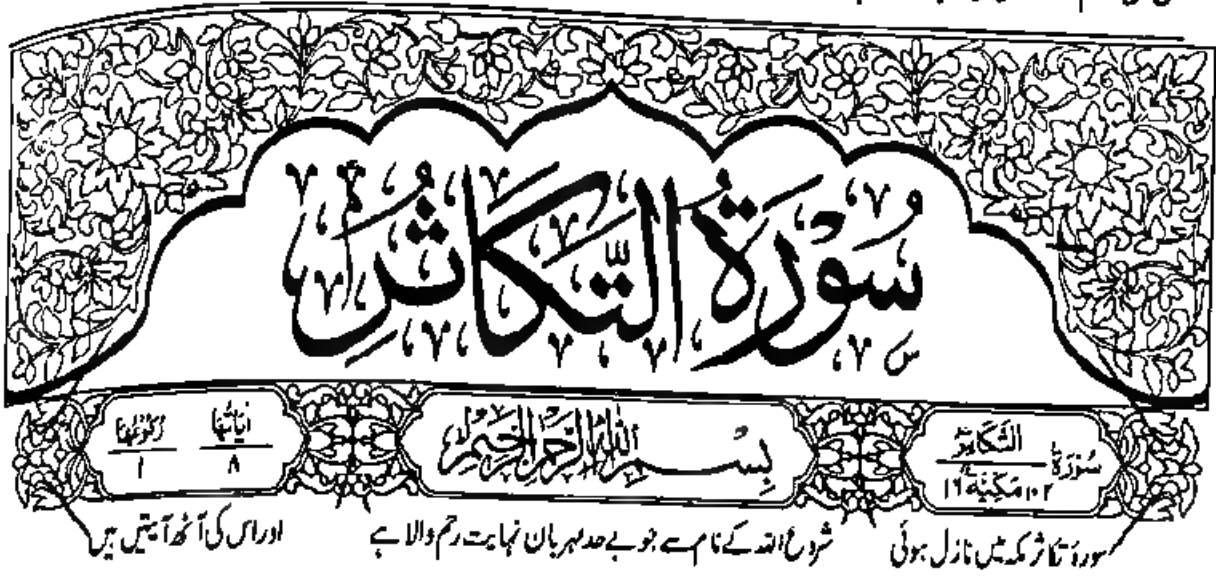 سُوْرَةُ التَّكَاثُرِ
سُوْرَةُ التَّكَاثُرِ ١٠٢ مَكِّيَّةٌ ١٦
بِسْمِ اللهِ الرَّحْمٰنِ الرَّحِيْمِ
اٰيَاتُهَا ٨ رُكُوْعُهَا ١
سورۂ تکاثر مکہ میں نازل ہوئی شروع اللہ کے نام سے جو بے حد مہربان نہایت رحم والا ہے اور اس کی آٹھ آیتیں ہیں